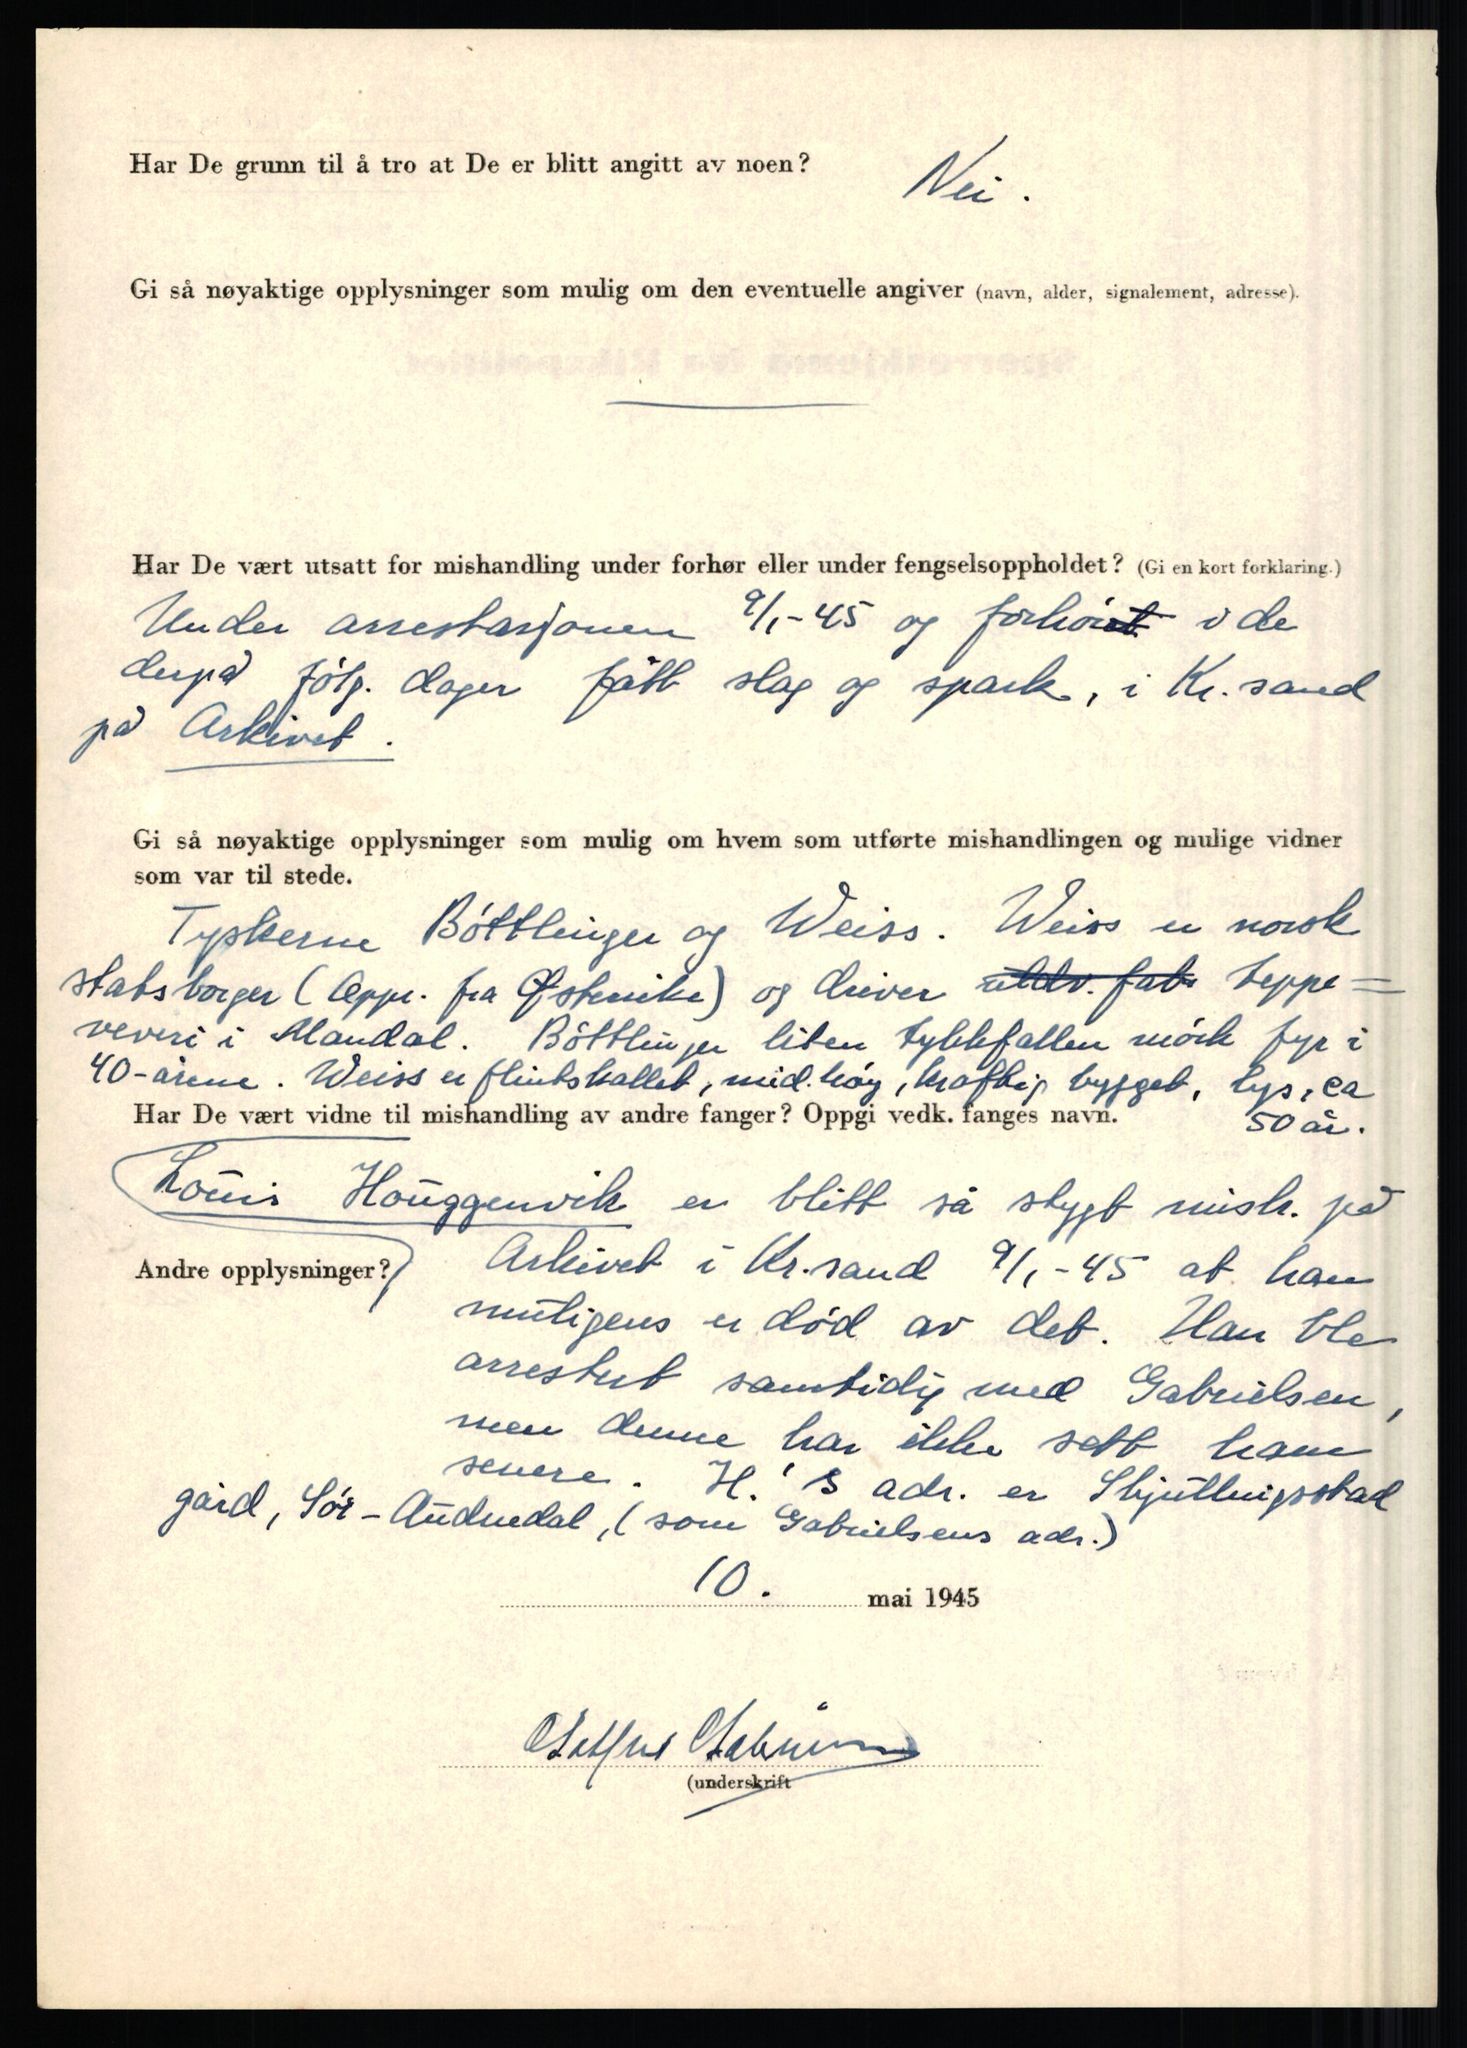 Har De grunn til å tro at De er blitt angitt av noen?
Nei.
Gi så nøyaktige opplysninger som mulig om den eventuelle angiver (navn, alder, signalement, adresse).
Har De vært utsatt for mishandling under forhør eller under fengselsoppholdet? (Gi en kort forklaring.)
Under arrestasjonen 9/1-45 og forhör i de
derpå følg. dager fått slag og spark, i Kr.sand
på Arkivet.
Gi så nøyaktige opplysninger som mulig om hvem som utførte mishandlingen og mulige vidner
som var til stede.
Tyskerne Böttlinger og Weiss. Weiss er norsk
statsborger (oppr. fra Østerrike) og driver teppe=
veveri i Mandal. Böttlinger liten tykkfallen mörk fyr i
40-årene. Weiss er flintskallet, mid. höy, kraftig bygget, lys, ca
50 år.
Har De vært vidne til mishandling av andre fanger? Oppgi vedk. fanges navn.
Louis Houggenvik er blitt så stygt mish. på
Andre opplysninger?
Arkivet i Kr.sand 9/1-45 at han
muligens er död av det. Han ble
arrestert samtidig med Gabrielsen,
men denne har ikke sett ham
senere. H.'s adr. er Skjullingsstad
gård, Sör-Audnedal, (som Gabrielsens adr.)
10. mai 1945
(underskrift